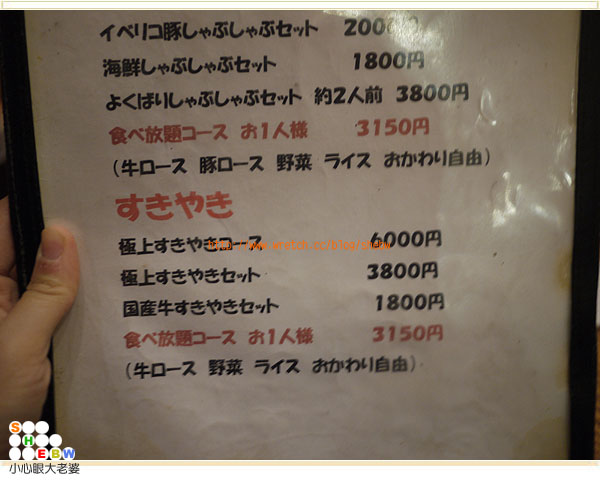 イベリコ豚しゃぶしゃぶセット 2000円
海鮮しゃぶしゃぶセット 1800円
よくばりしゃぶしゃぶセット 約2人前 3800円
食べ放題コース お1人様 3150円
(牛ロース 豚ロース 野菜 ライス おかわり自由)
すきやき
極上すきやきコース 6000円
極上すきやきセット 3800円
国産牛すきやきセット 1800円
食べ放題コース お1人様 3150円
(牛ロース 野菜 ライス おかわり自由)
SHEBW
小心眼大老婆